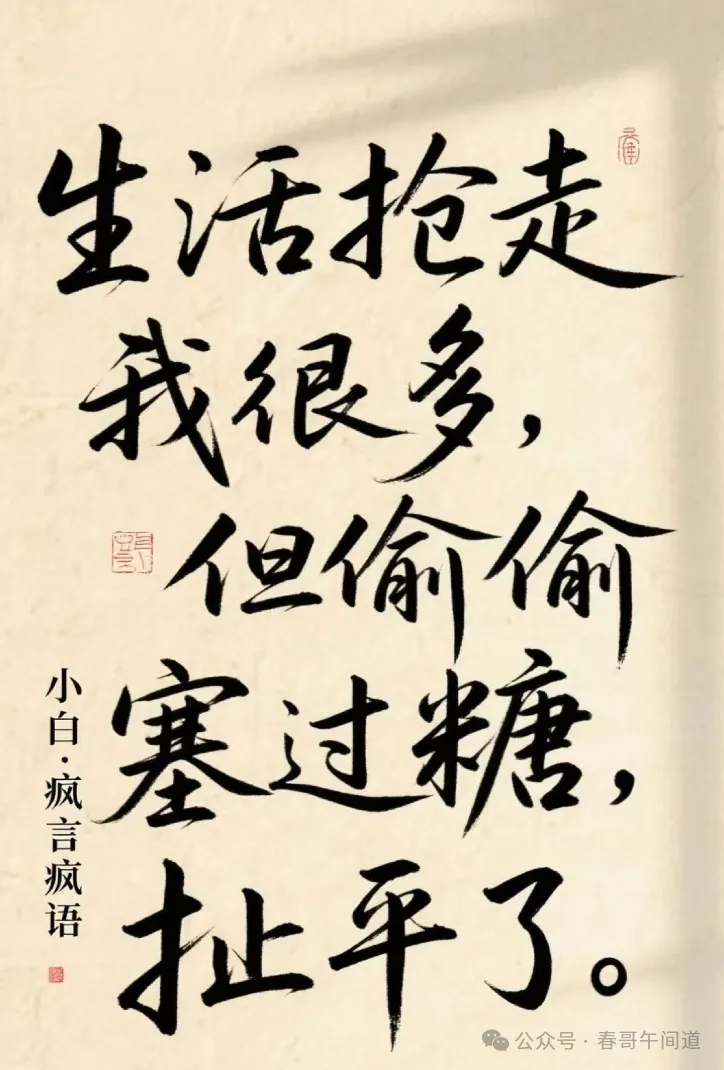 生活抢走
我很多，
但偷偷
塞过糖，
扯平了。
小白·疯言疯语
公众号·春哥午间道